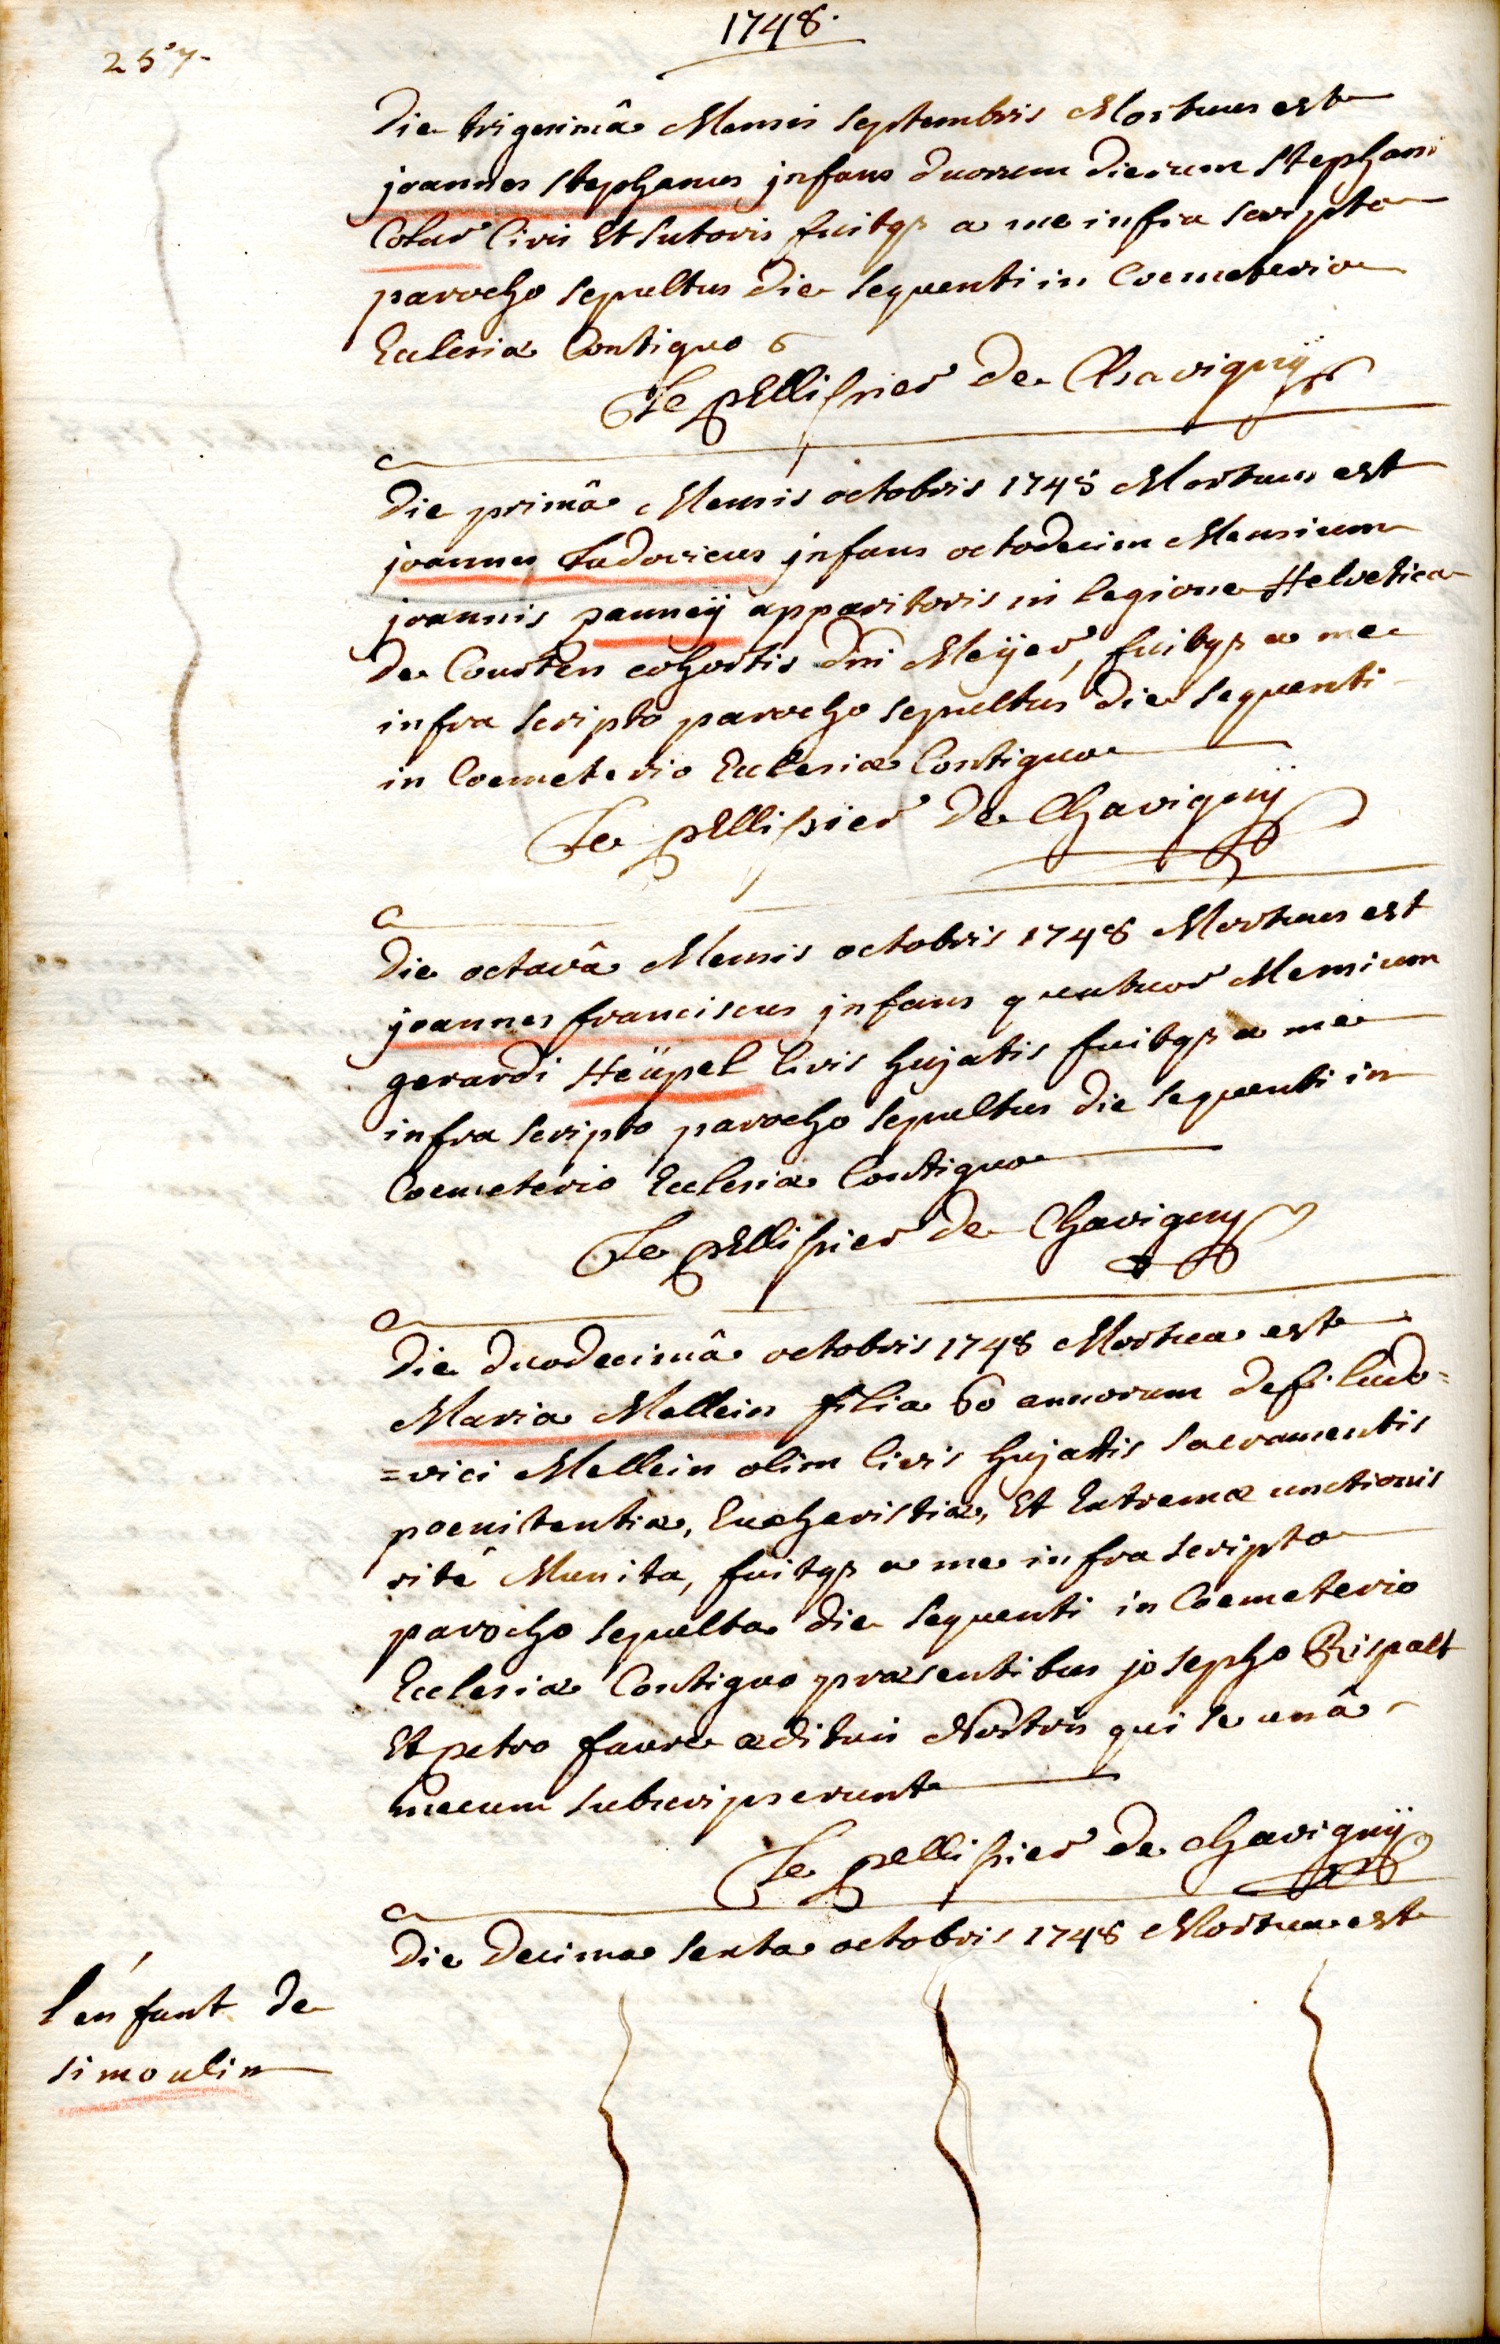 1748.
257.
Die trigesimâ Mensis septembris Mortuus est
joannes stephanus jnfans duorum dierum stephani
Civis Et sutoris fuitq3 a me infra scripto
parocho sepultus die sequenti in Coemeterio
Ecclesiæ Contiguo
Le pEllissier De Chavignÿ
Die primâ Mensis octobris 1748 Mortuus est
joannes Ludovicus jnfans octodecim Mensium
joannis pannëÿ apparitoris in legione Helvetica
de Courten cohortis dni Meÿer, fuitq3 a me
infra scripto parocho sepultus die sequenti
in Coemeterio Ecclesiæ Contiguo
Le pEllissier De Chavignÿ
Die octavâ Mensis octobris 1748 Mortuus est
joannes franciscus jnfans quatuor Mensium
gerardi Heüpel Civis hujatis fuitq3 a me
infra scripto parocho sepultus die sequenti in
Coemeterio Ecclesiæ Contiguo
Le pEllissier de Chavigny
Die duodecimâ octobris 1748 Mortua est
Maria Mellein filia 60 annorum def. Ludo=
=vici Mellein olim Civis hujatis sacramentis
poenitentiæ, Eucharistiæ, Et Extremæ unctionis
ritè Munita, fuitq3 a me infra scripto
parocho sepulta die sequenti in Coemeterio
Ecclesiæ Contiguo præsentibus josepho Rispalt
Et petro faure ædituis Nostris qui se unâ
mecum subscripserunt
Le pellissier de Chavignÿ
Die Decima sexta octobris 1748 Mortua est
l'enfant de
simoulin